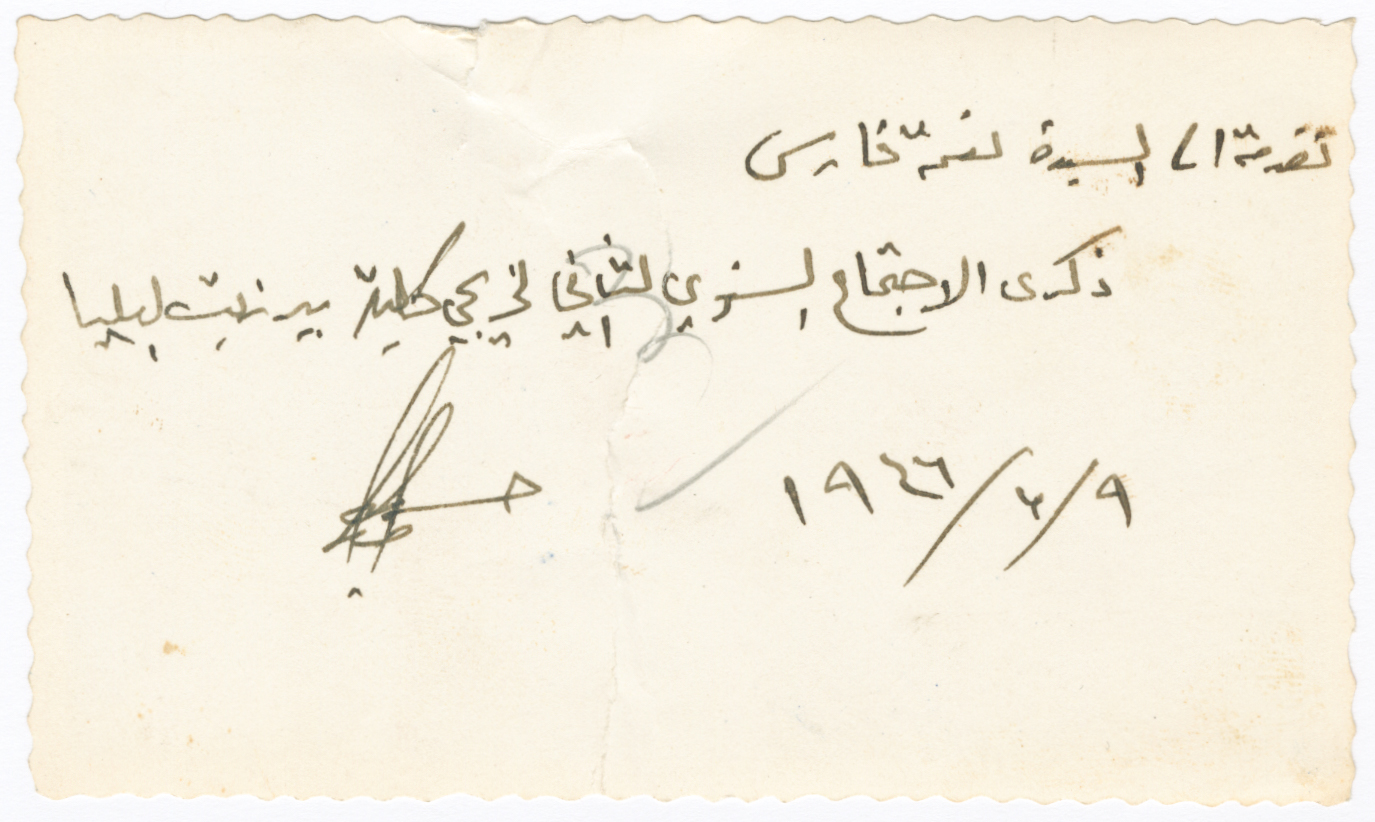 تقدمة الى السيدة نعمة فارس
ذكرى الاجتماع السنوي الثاني لخريجي كلية بير زيت العليا
٩/٦/١٩٤٦